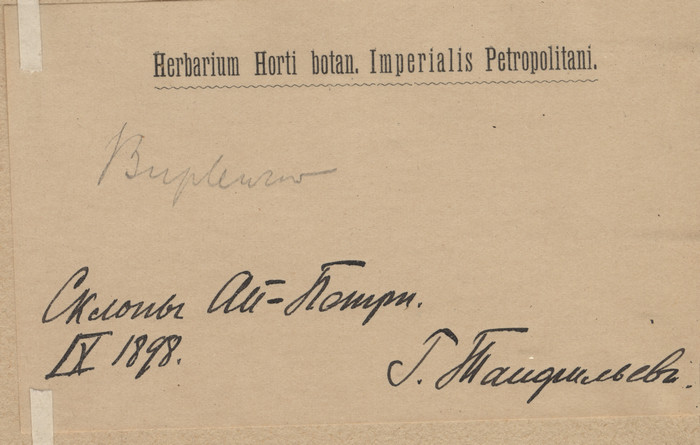 Herbarium Horti botan. Imperialis Petropolitani.
Bupleurum
Склоны Ай-Петри.
IX 1898.
Г. Танфильевъ.